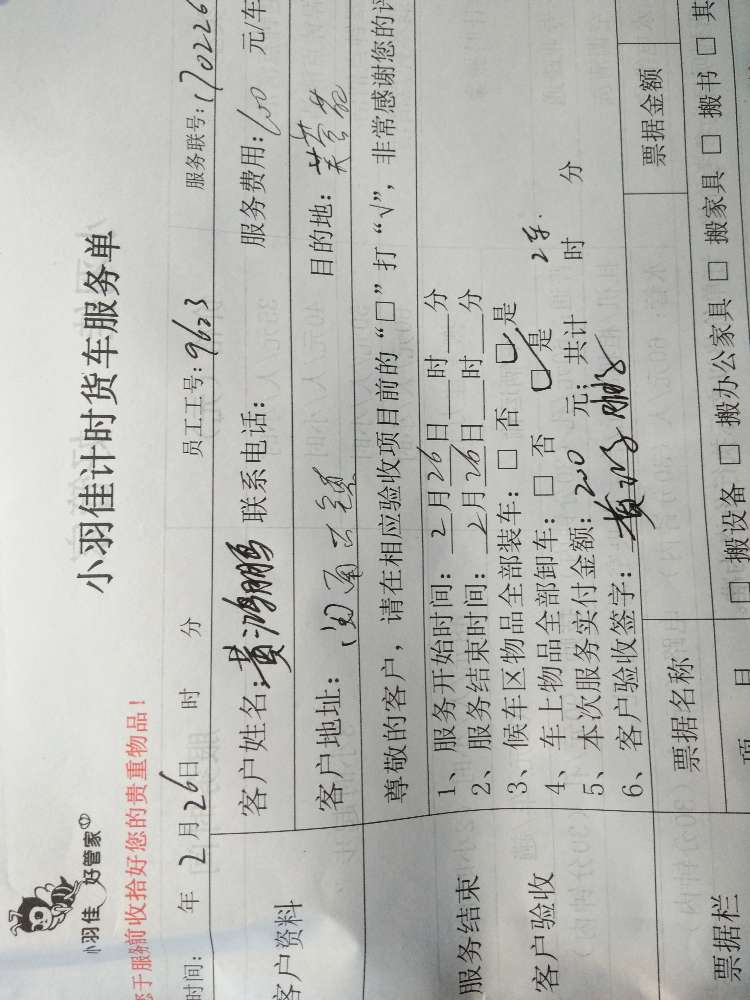 小羽佳 好管家
小羽佳计时货车服务单
您于服务前收拾好您的贵重物品!
时间: 年 2月26日 时 分 员工工号: 9623 服务联号: 170226
客户资料
客户姓名: 黄鸿鹏 联系电话: 服务费用: 元/车
客户地址: 目的地: 芙蓉苑
尊敬的客户,请在相应验收项目前的“□”打“√”,非常感谢您的评
服务结束
客户验收
1、服务开始时间: 2月26日__时__分
2、服务结束时间: 2月26日__时__分
3、候车区物品全部装车: □ 否 ☑ 是
4、车上物品全部卸车: □ 否 ☑ 是 2车.
5、本次服务实付金额: 200 元; 共计 时 分
6、客户验收签字: 黄鸿鹏
票据栏
票据名称 票据金额
项 目
□ 搬设备 □ 搬办公家具 □ 搬家具 □ 搬书 □ 其